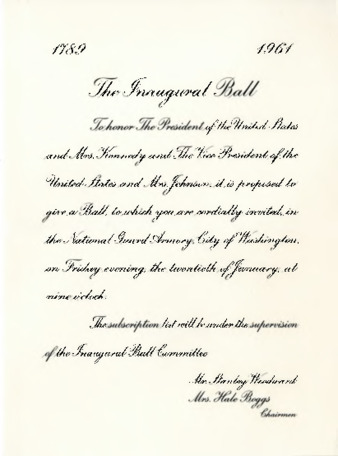 1789 1961
The Inaugural Ball
To honor The President of the United States
and Mrs. Kennedy and The Vice President of the
United States and Mrs. Johnson, it is proposed to
give a Ball, to which you are cordially invited, in
the National Guard Armory, City of Washington,
on Friday evening, the twentieth of January, at
nine o'clock.
The subscription list will be under the supervision
of the Inaugural Ball Committee
Mr. Stanley Woodward
Mrs. Hale Boggs
Chairmen